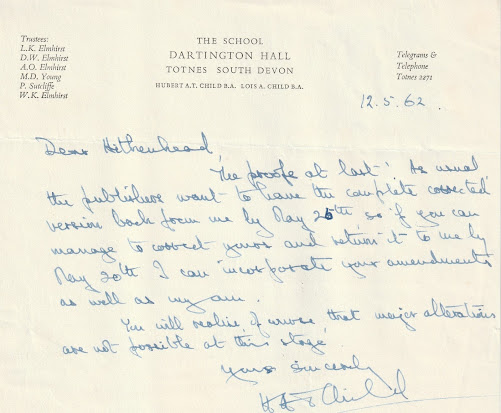 Trustees:
L.K. Elmhirst
D.W. Elmhirst
A.O. Elmhirst
M.D. Young
P. Sutcliffe
W.K. Elmhirst
THE SCHOOL
DARTINGTON HALL
TOTNES SOUTH DEVON
HUBERT A.T. CHILD B.A. LOIS A. CHILD B.A.
Telegrams &
Telephone
Totnes 2271
12.5.62.
Dear Hithenhead,
The proofs at last! As usual
the publishers want to have the complete corrected
version back from me by May 25th, so if you can
manage to correct yours and return it to me by
May 20th I can incorporate your amendments
as well as my own.
You will realise, of course, that major alterations
are not possible at this stage.
Yours sincerely